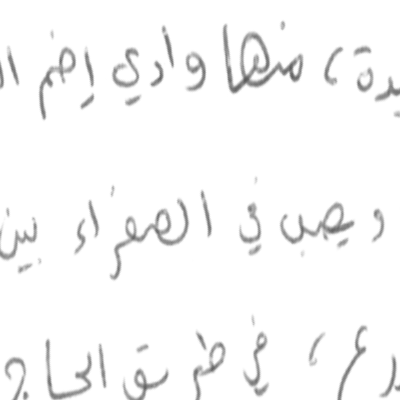 يدة، منها وادي إضم ال
ويصب في الصفراء بين
رع، في طريق الحاج